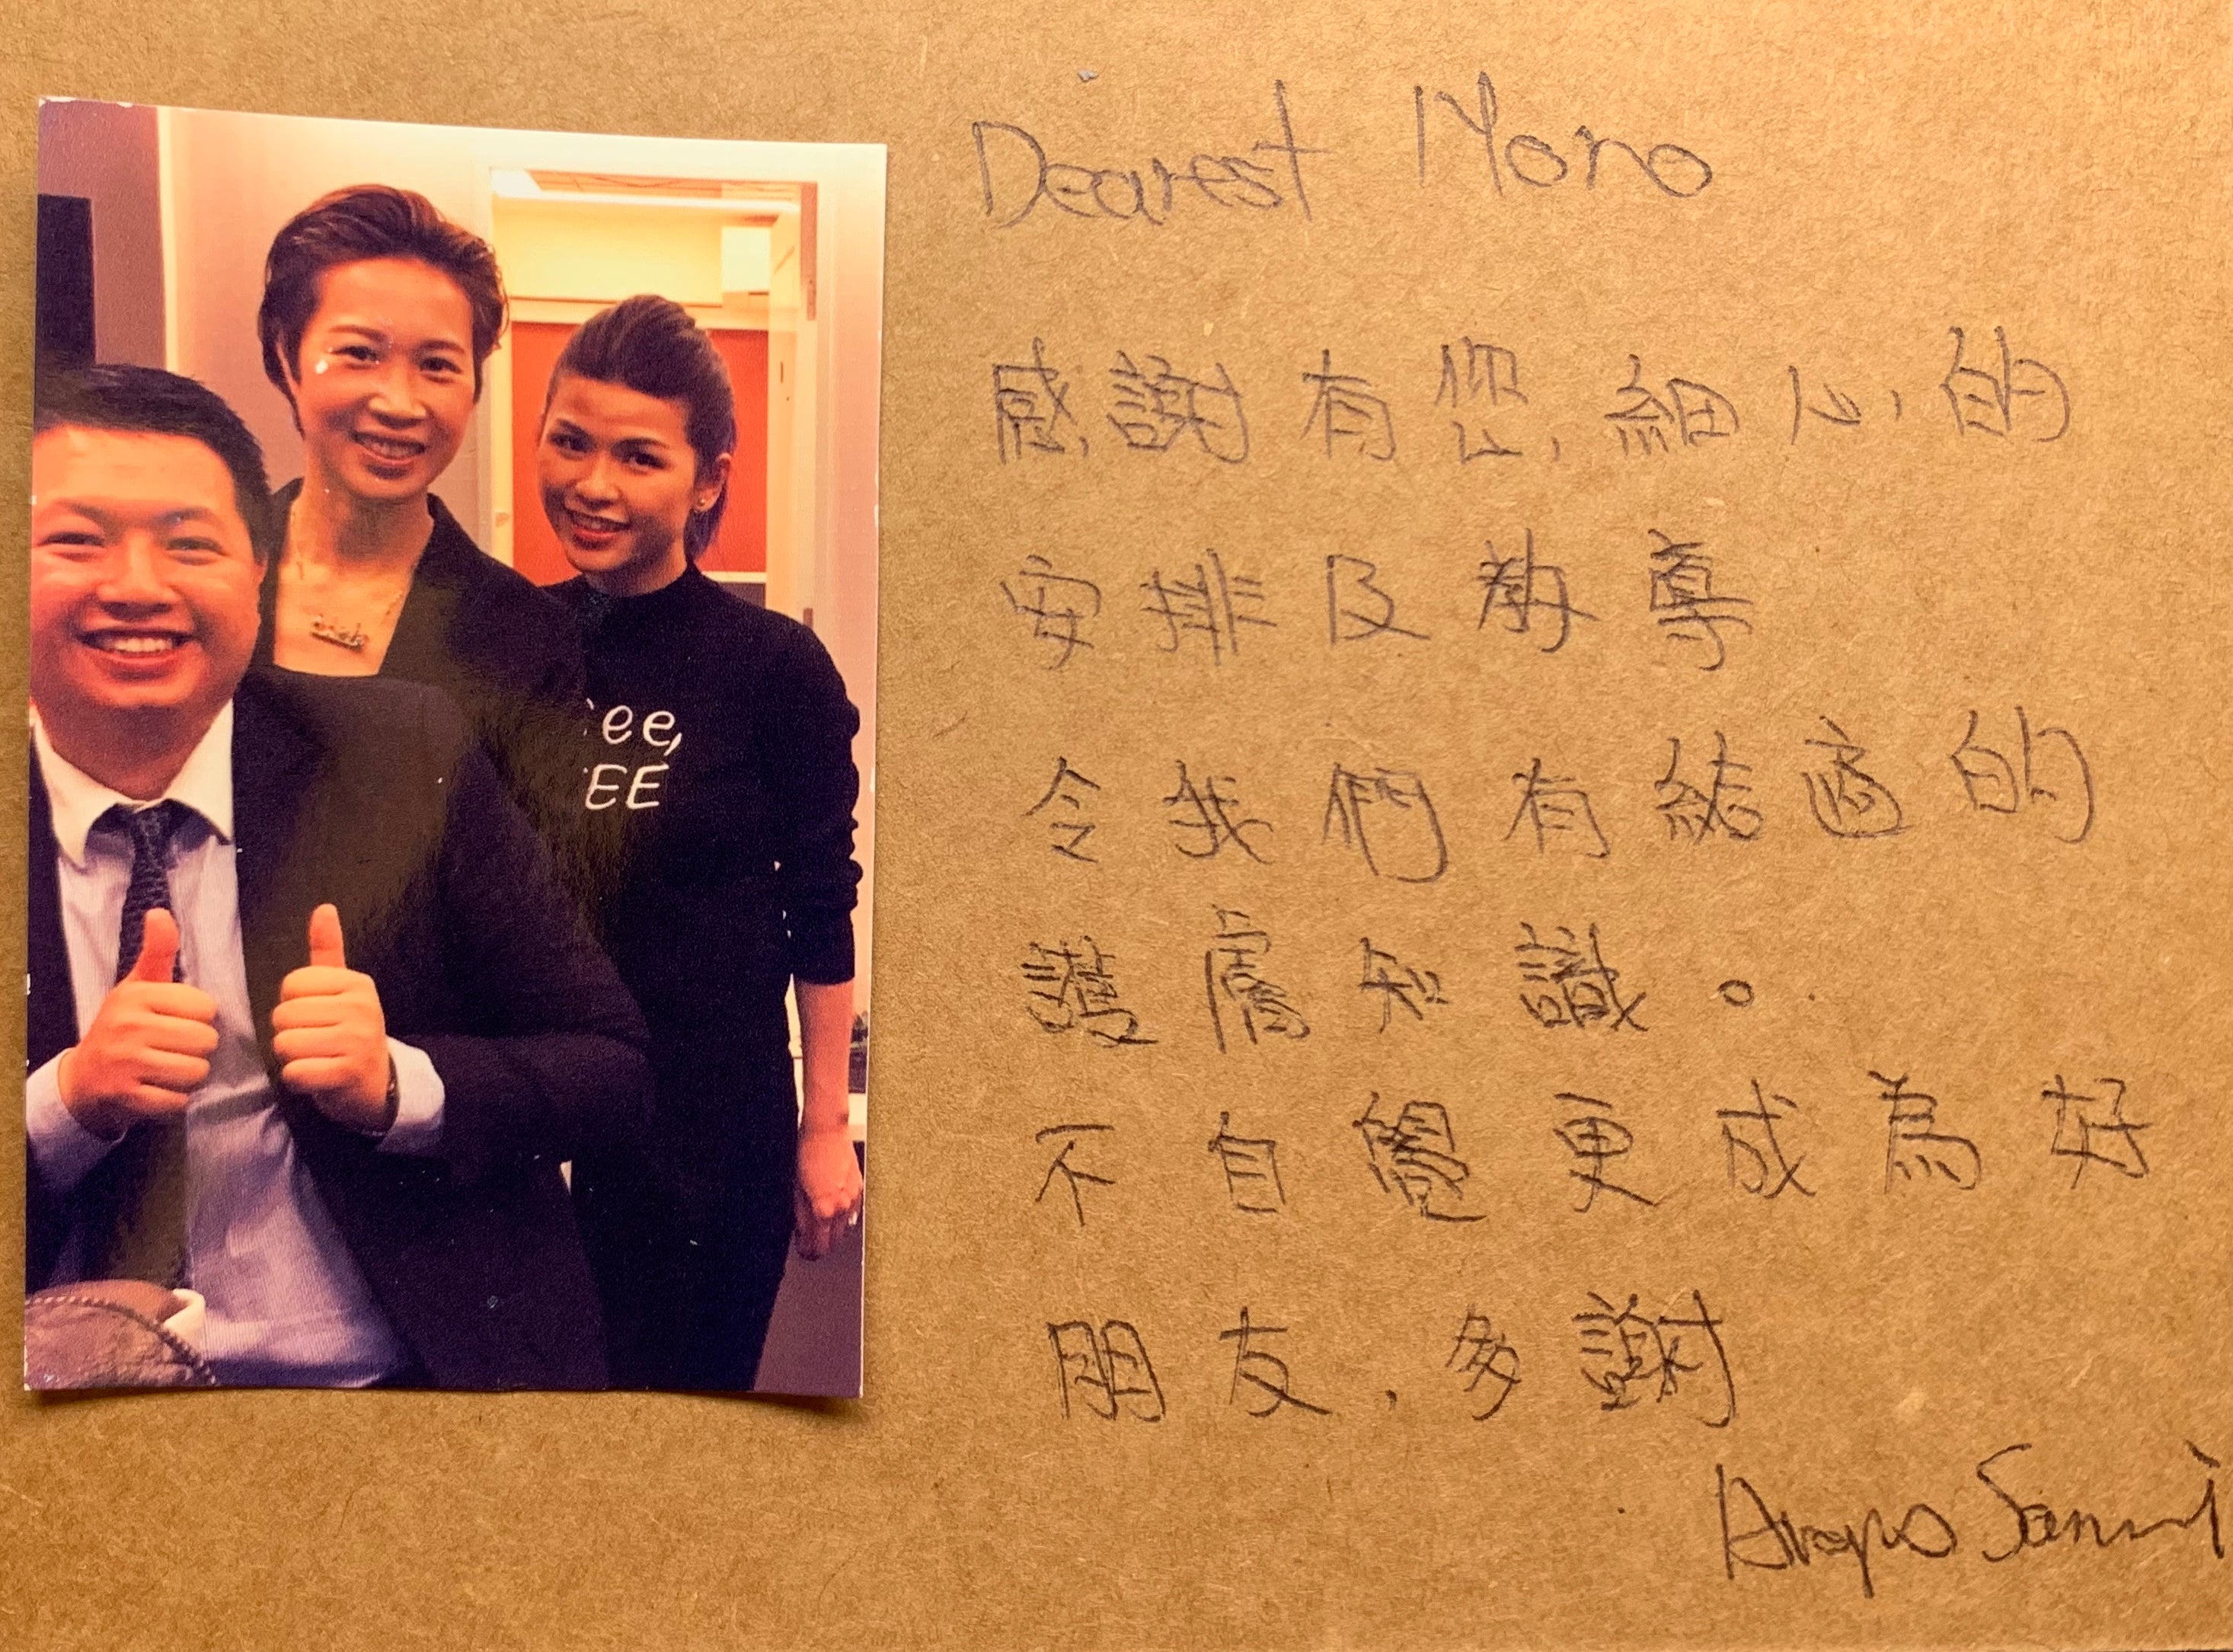 Dearest Mono
感謝有您,細心的
安排及教導
令我們有結適的
護膚知識。
不自覺更成為好
朋友,多謝
ee,
EE